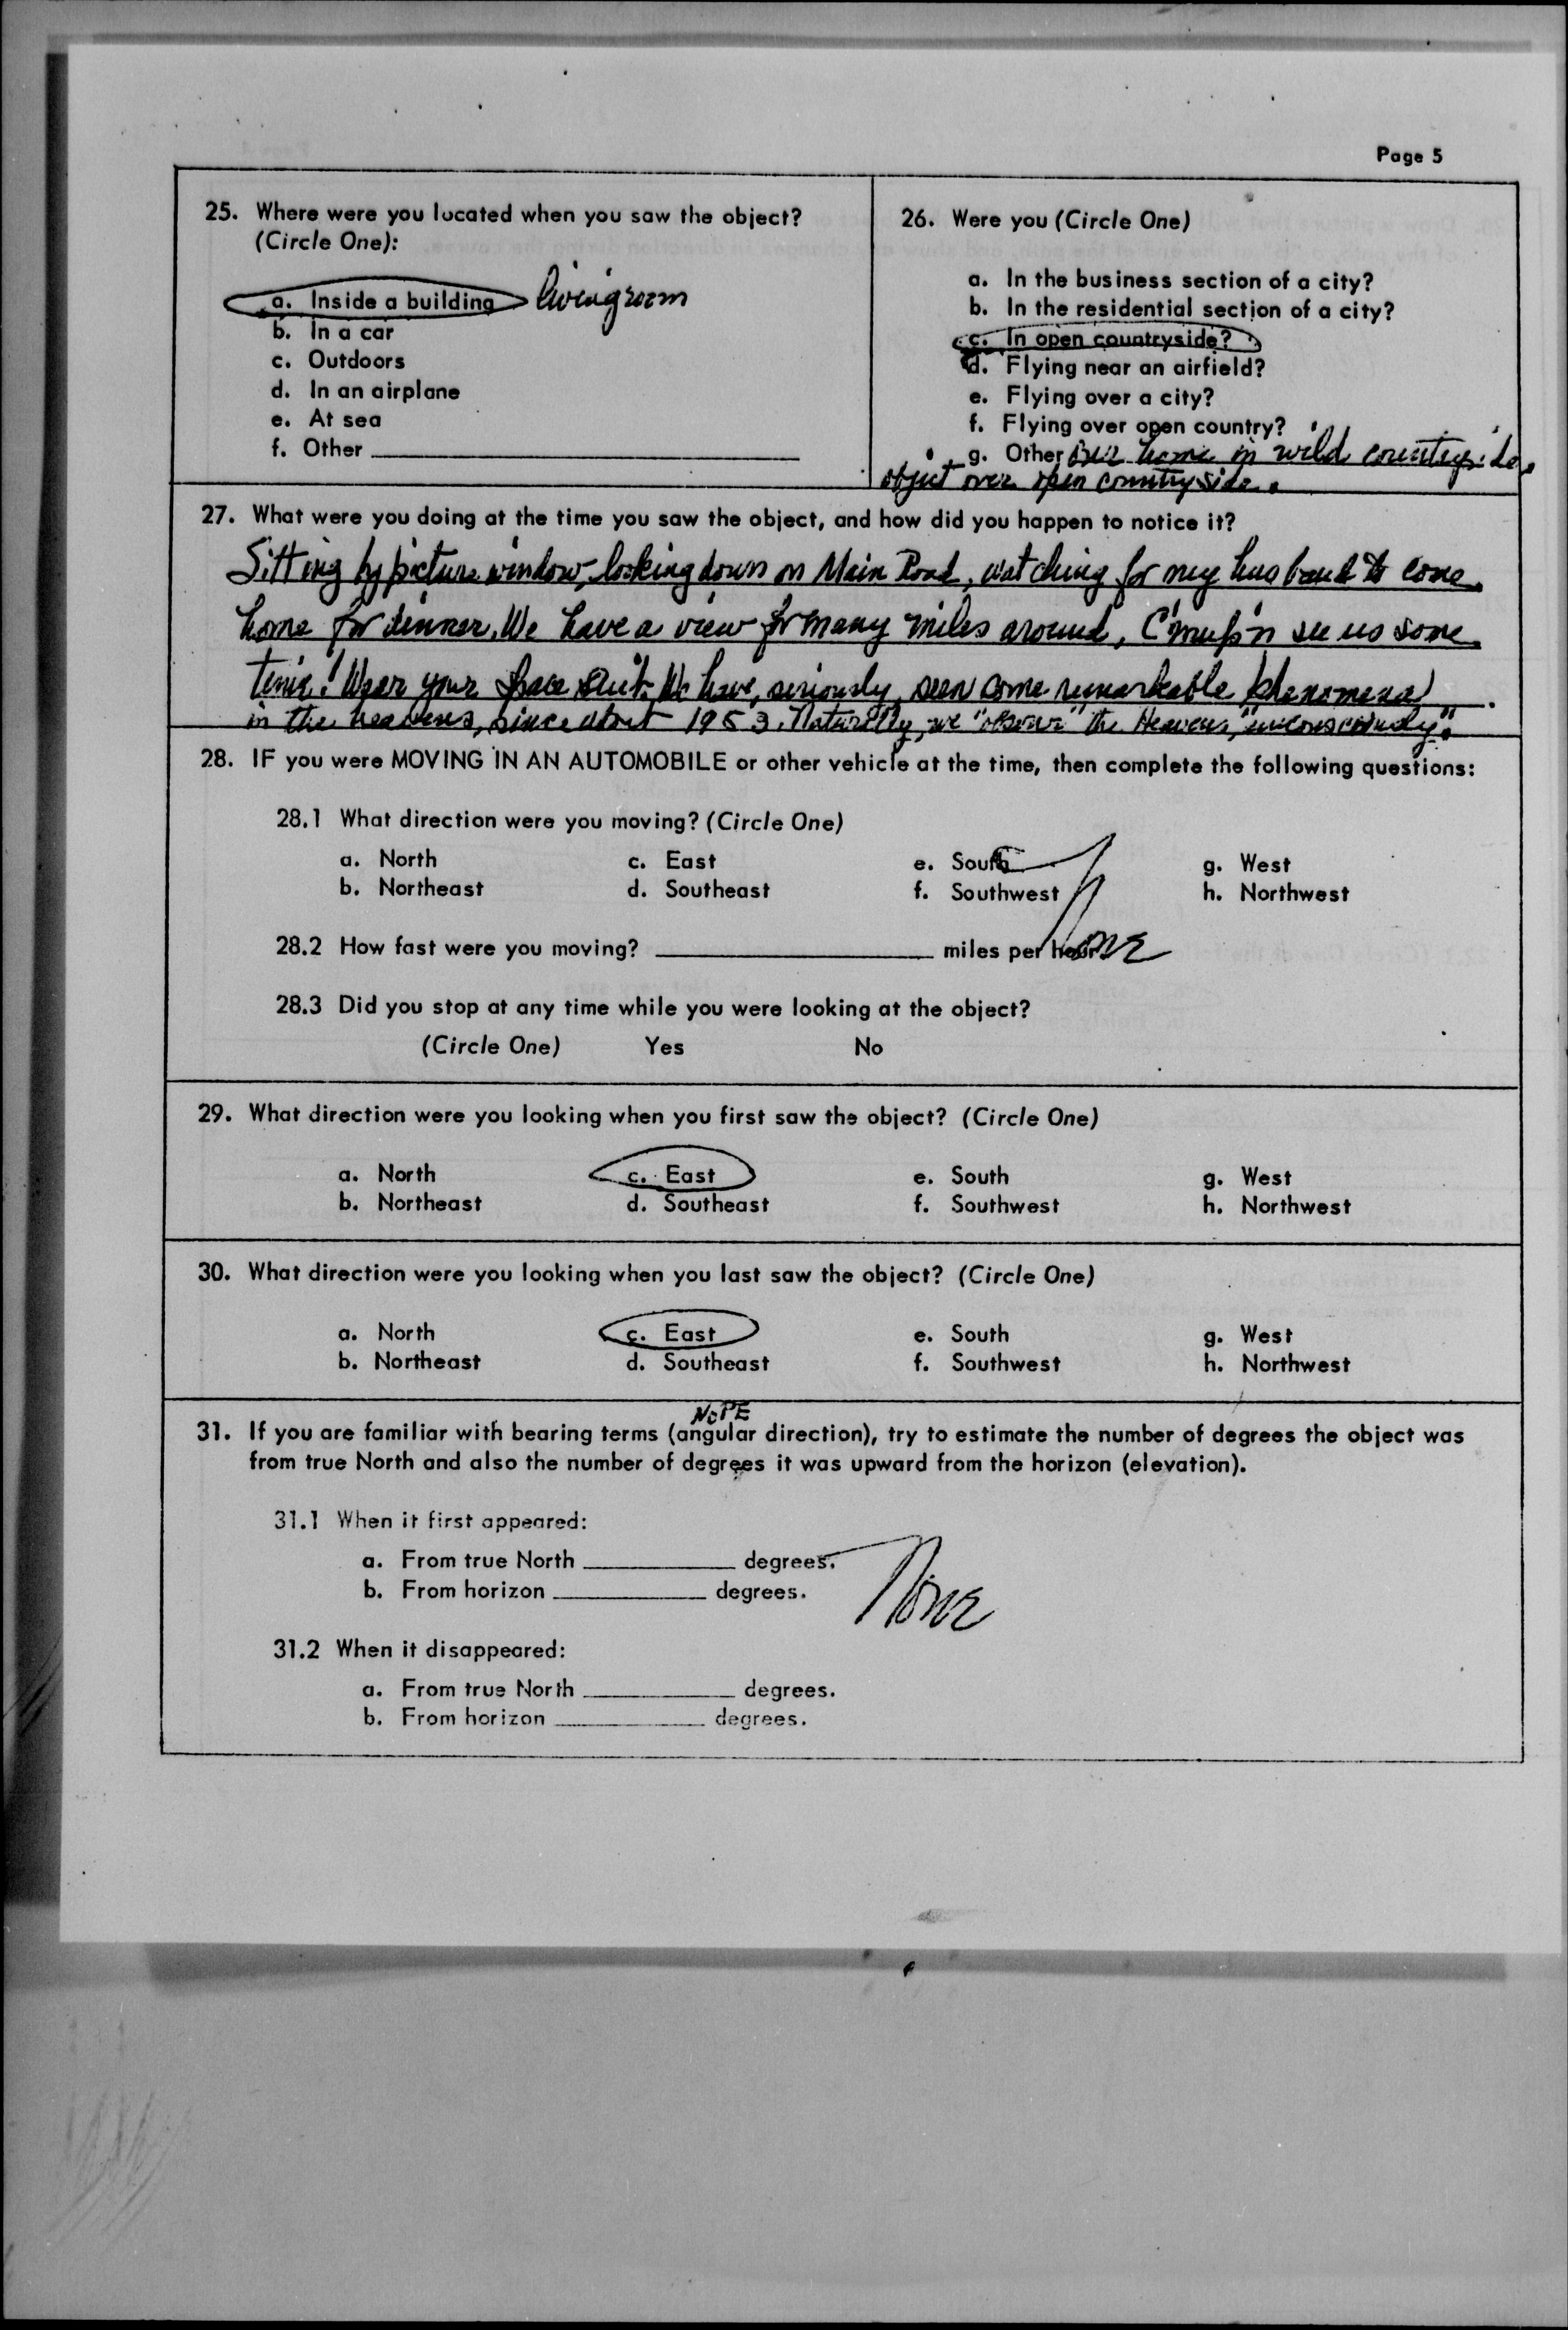 Page 5
25. Where were you located when you saw the object?
(Circle One):
a. Inside a building livingroom
b. In a car
c. Outdoors
d. In an airplane
e. At sea
f. Other
26. Were you (Circle One)
a. In the business section of a city?
b. In the residential section of a city?
c. In open countryside?
d. Flying near an airfield?
e. Flying over a city?
f. Flying over open country?
g. Other our home in wild countryside,
object over open countryside.
27. What were you doing at the time you saw the object, and how did you happen to notice it?
Sitting by picture window, looking down on Main Road, watching for my husband to come
home for dinner. We have a view for many miles around, C'mup'n see us some
time! Wear your space suit. We have, seriously, seen some remarkable phenomena
in the heavens, since about 1953. Naturally, we "observe" the Heavens, "unconsciously".
28. IF you were MOVING IN AN AUTOMOBILE or other vehicle at the time, then complete the following questions:
28.1 What direction were you moving? (Circle One)
a. North c. East e. South g. West
b. Northeast d. Southeast f. Southwest h. Northwest
28.2 How fast were you moving? miles per hour None
28.3 Did you stop at any time while you were looking at the object?
(Circle One) Yes No
29. What direction were you looking when you first saw the object? (Circle One)
a. North c. East e. South g. West
b. Northeast d. Southeast f. Southwest h. Northwest
30. What direction were you looking when you last saw the object? (Circle One)
a. North c. East e. South g. West
b. Northeast d. Southeast f. Southwest h. Northwest
NOPE
31. If you are familiar with bearing terms (angular direction), try to estimate the number of degrees the object was
from true North and also the number of degrees it was upward from the horizon (elevation).
31.1 When it first appeared:
a. From true North degrees.
b. From horizon degrees. None
31.2 When it disappeared:
a. From true North degrees.
b. From horizon degrees.